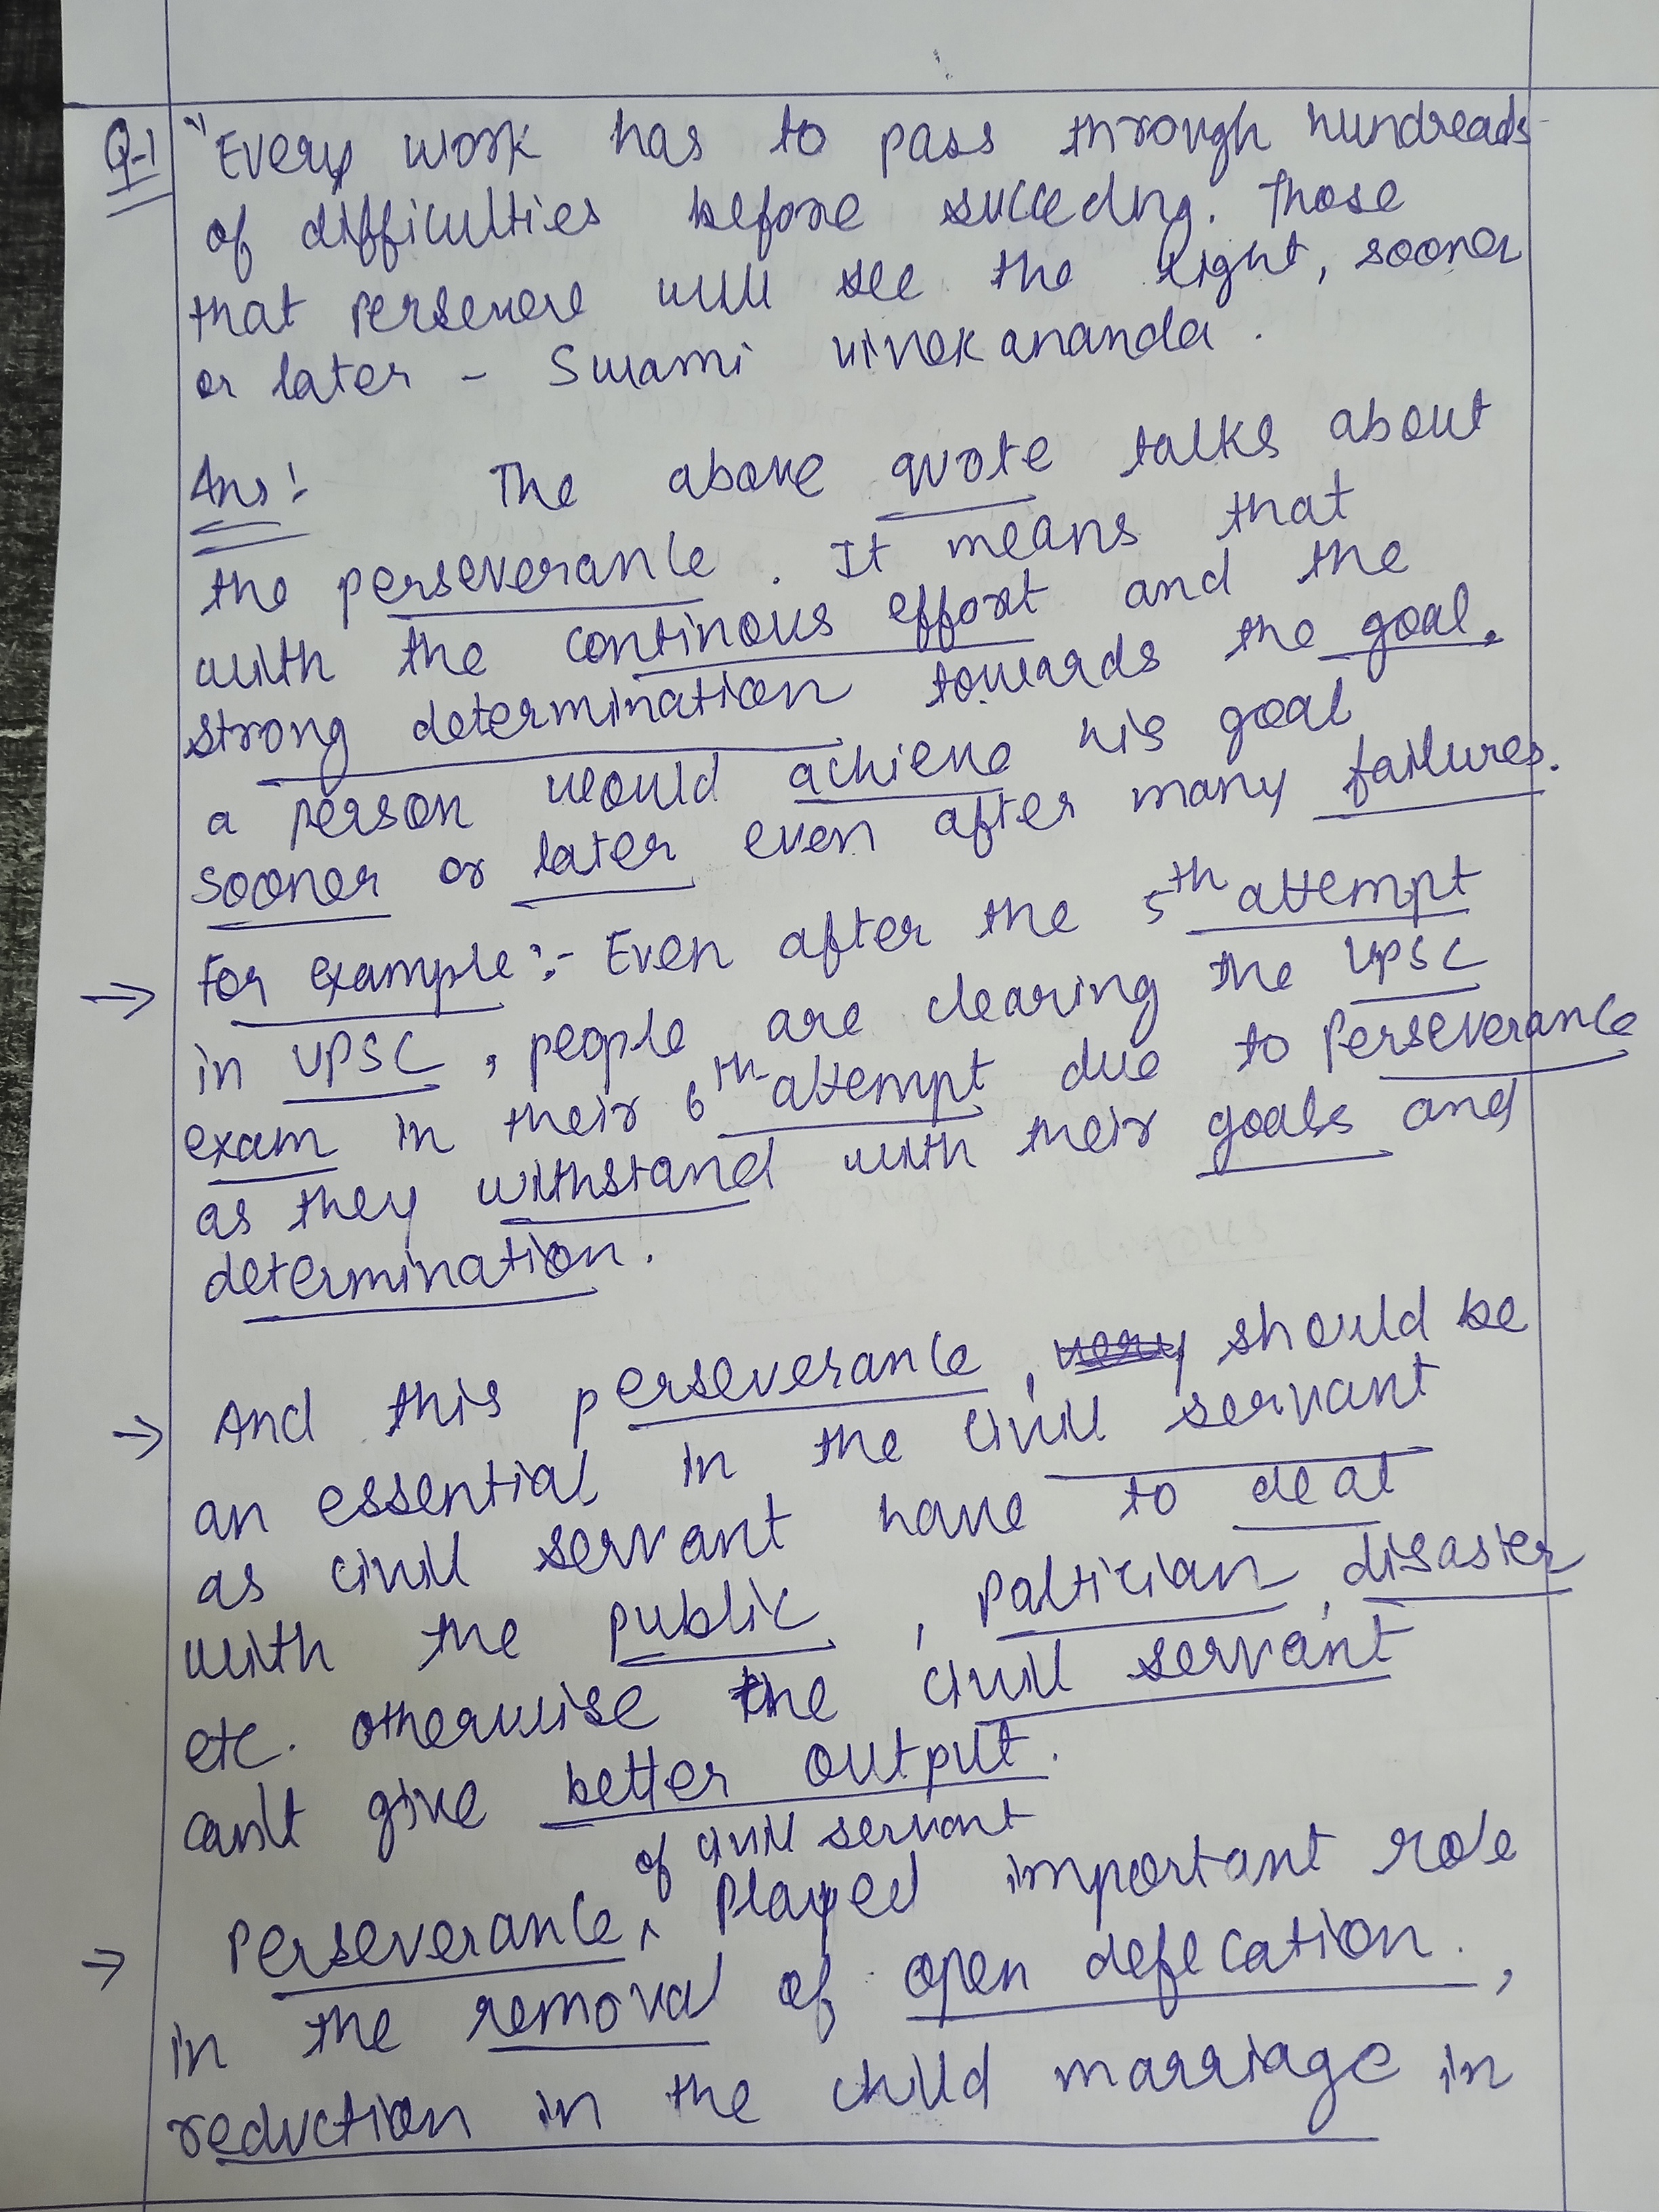 Q-1 "Every work has to pass through hundreads
of difficulties before succeding. Those
that persevere will see the light, sooner
or later - Swami vivekananda.
Ans:- The above quote talks about
the perseverance. It means that
with the continous effort and the
strong determination towards the goal,
a person would achieve his goal
sooner or later even after many failures.
→ For example:- Even after the 5th attempt
in UPSC, people are clearing the UPSC
exam in their 6th attempt due to Perseverance
as they withstand with their goals and
determination.
→ And this perseverance, very should be
an essential in the civil servant
as civil servant have to deal
with the public, Poltician, disaster
etc. otherwise the civil servant
can't give better output.
of civil servant
→ Perseverance, ^ Played important role
in the removal of open defecation.,
reduction in the child marriage in